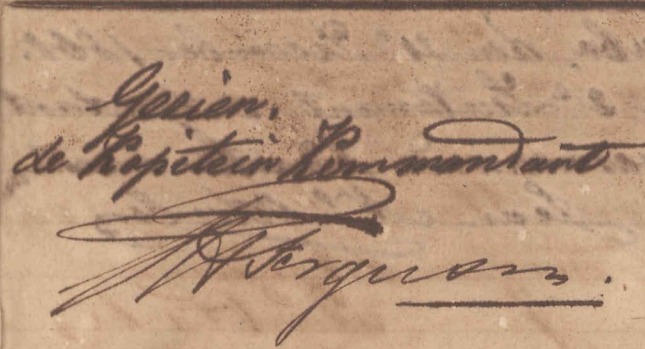 Gezien,
de Kapitein Kommandant
Ferguson.